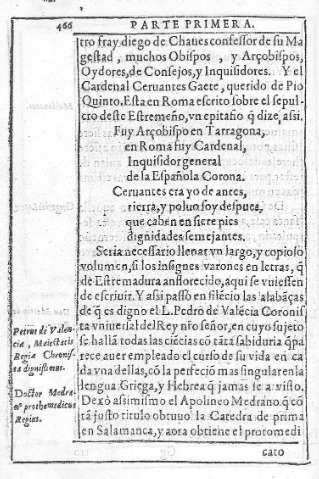 466 PARTE PRIMERA.
tro fray diego de Chaues confessor de su Ma
gestad, muchos Obispos, y Arçobispos,
Oydores, de Consejos, y Inquisidores. Y el
Cardenal Ceruantes Gaete, querido de Pio
Quinto. Esta en Roma escrito sobre el sepul
cro deste Estremeño, vn epitafio q̃ dize, assi.
Fuy Arçobispo en Tarragona,
en Roma fuy Cardenal,
Inquisidor general
de la Española Corona.
Ceruantes era yo de antes,
tierra, y poluo soy despues,
que caben en siete pies
dignidades semejantes.
Seria necessario llenar vn largo, y copioso
volumen, si los insignes varones en letras, q̃
de Estremadura an florecido, aqui se vuiessen
de escriuir. Y assi passo en silẽcio las alabãças
de q̃ es digno el L. Pedro de Valẽcia Coronis
ta vniuersal del Rey nr̃o señor, en cuyo sujeto
se hallã todas las ciẽcias cõ tãta sabiduria q̃ pa
rece auer empleado el curso de su vida en ca
da vna dellas, cõ la perfeciõ mas singular en la
lengua Griega, y Hebrea q̃ jamas se a visto.
Dexò assimismo el Apolineo Medrano, q̃ cõ
tã justo titulo obtuuo la Catedra de prima
en Salamanca, y aora obtiene el protomedi
cato
Petrus de Valen-
cia, Maiestatis
Regiæ Chronis-
ta dignissimus.
Doctor Medra-
no prothomedicus
Regius.